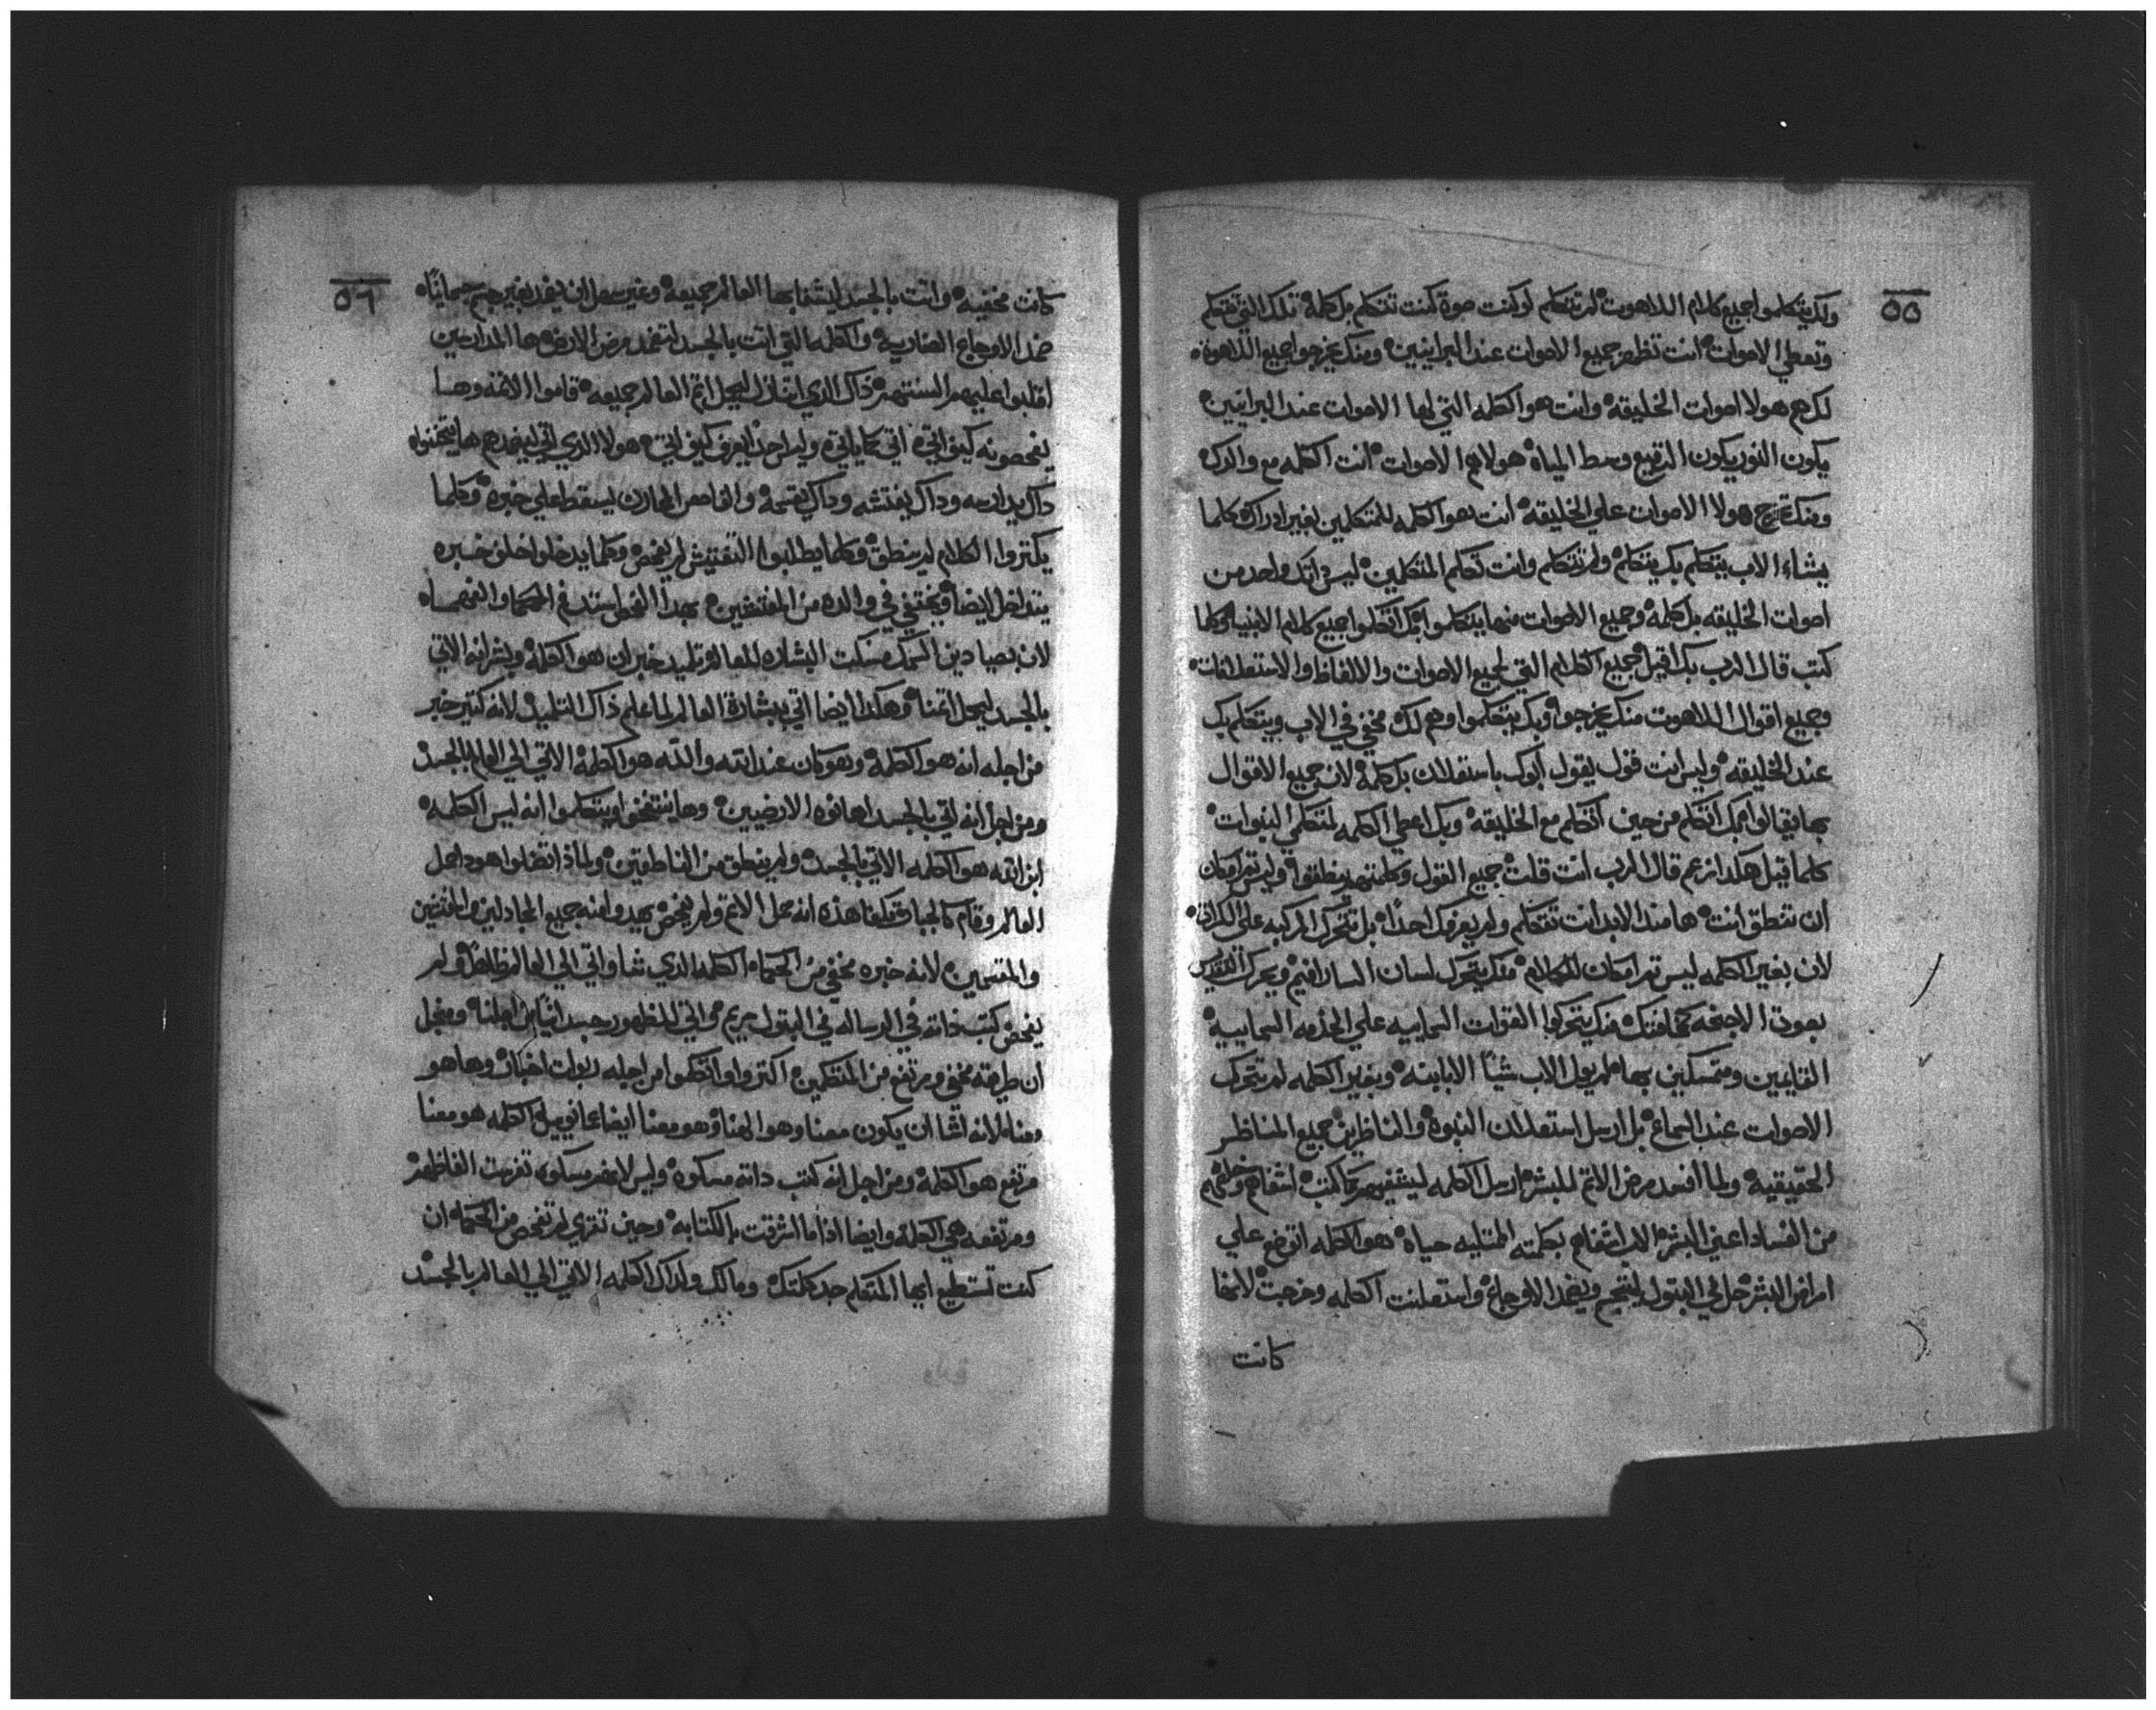 ٥٥
ولك يتكلموا جميع كلام اللاهوت لم تتكلم لو كنت صوة كنت تتكلم بل كلمة تلك التي تتكلم
وتعطي الاصوات انت تظهر جميع الاصوات عند البرانيين ومنك يخرجوا جميع اللاهوة
لكن هم هولا اصوات الخليقه وانت هو الكلمه التي لها الاصوات عند البرانيين
يكون النور يكون الرقيع وسط المياه هولا هم الاصوات انت الكلمه مع والدك
ومنك تخرج هولا الاصوات علي الخليقه انت هو الكلمه للمتكلمين بغير ادراك كلما
يشاء الاب يتكلم بك يتكلم ولم تتكلم وانت تكلم المتكلمين ليس ذاتك واحد من
اصوات الخليقه بل كلمة وجميع الاصوات منها يتكلموا بك اتكلموا جميع كلام الانبيا وكلما
كتب قال الرب بك اقيل جميع الكلام التي لجميع الاصوات والالفاظ والاستعلانات
وجميع اقوال اللاهوت منك يخرجوا وبك يتكلموا وهم لك مخفي في الاب ويتكلم بك
عند الخليقه وليس انت قول يقول ابوك باستعلان بل كلمة لان جميع الاقوال
بها يقالوا بك اتكلم من حين اتكلم مع الخليقه وبك اعطي الكلمه لمتكلمي النبوات
كلما قيل هكدا نزعم قال الرب انت قلت جميع القول وكلمتهم ينطقوا وليس تم امكان
ان تنطق انت ها منذ الابد انت تتكلم ولم يعرفك احدا بل تتحرك المركبه علي الكراسي
لان بغير الكلمه ليس تم امكان للكلام منك يتحرك لسان السارافيم ويحرك التقديس
بصوت الاجنحه مخافتك منك يتحركوا القوات السماييه علي الخدمه السماييه
القايمين ومتمسكين بها لم يول الاب شيا الا بابنه وبغير الكلمه لم يتحرك
الاصوات عند السماع بل ارسل استعلان النبوة والناظرين جميع المناظر
الحقيقيه ولما افسد مرض الاتم للبشر ارسل الكلمه ليشفيهم كما كتب اشفاهم وخلصهم
من الفساد اعني البشر الاب اشفاهم بكلمته الممتليه حياه هو الكلمه اتوضع علي
امراض البشر حل في البتول ليتجسم ويضمد الاوجاع واستعلنت الكلمه وخرجت لانها
كانت
٥٦
كانت مخفيه واتت بالجسد ليشفا بها العالم جميعه وغير سهل ان يضمد بغير جسم جسمانيا
ضمد الاوجاع الضاريه والكلمه التي اتت بالجسد لتضمد مرض الارض ها المدارسين
اقلبوا عليهم السنتهم ذاك الذي اتنازل ليحل اتم العالم جميعه قاموا الاتمه وهسا
يفحصونه كيف اتي اتي كما ياتي وليس احد يعرف كيف اتي هولا الذي اتي ليضمدهم ها يمتحنوه
داك يدارسه وداك يفتشه وداك يقسمه والفاحص المعاند ليسقط علي خبره وكلما
يكتروا الكلام لم ينطق وكلما يطلبوا التفتيش لم يفحص وكلما يدخلوا خلف خبره
يتداخل ايضا ويختفي في والده من المفتشين بهدا الفخ استد فم الحكما والفهما
لان بصيادين السمك مسكت البشاره للعالم وتلميد خبر ان هو الكلمة وبشر انه الاتي
بالجسد ليحل اتمنا وهكدا ايضا اتي ببشارة العالم لما علم ذاك التلميذ لانه كتير خبر
من اجله انه هو الكلمة وهو كان عند الله والله هو الكلمة الاتي الي العالم بالجسد
ومن اجل انه اتي بالجسد اهانوه الارضيين وها تنتفخوا ويتكلموا انه ليس الكلمه
ابن الله هو الكلمه الاتي بالجسد ولم ينطق من الناطقين ولماذا اتضلوا هودا حمل
العالم وقام كالجبار وكلفنا هذه انه حمل الاتم ولم يفحص
والمقتسمين لانه خبره مخفي من الحكماه الكلمه الذي شا واتي الي العالم ظاهرا ولم
يفحص كتب ذاته في الرساله في البتول مريم واتي للظهور جسدانيا من اجلنا ومن اجل
ان طريقه مخفي ومرتفع من المتكلمين اكتروا واتكلموا من اجله ربوات اخبار وها هو
معنا لانه اشا ان يكون معنا وهو الهنا وهو معنا ايضا عمانوييل الكلمه هو معنا
مرتفع هو الكلمة ومن اجل انه كتب داته مسكوه وليس لاخر مسكوه تفرست الفاظهم
ومرتفعه هي الكلمة وايضا اذا ما اشرقت بالكتابه وحين تنقري لم تفحص من الحكماه ان
كنت تستطيع ايها المتكلم حد كلمتك وما لك ولداك الكلمه الاتي الي العالم بالجسد